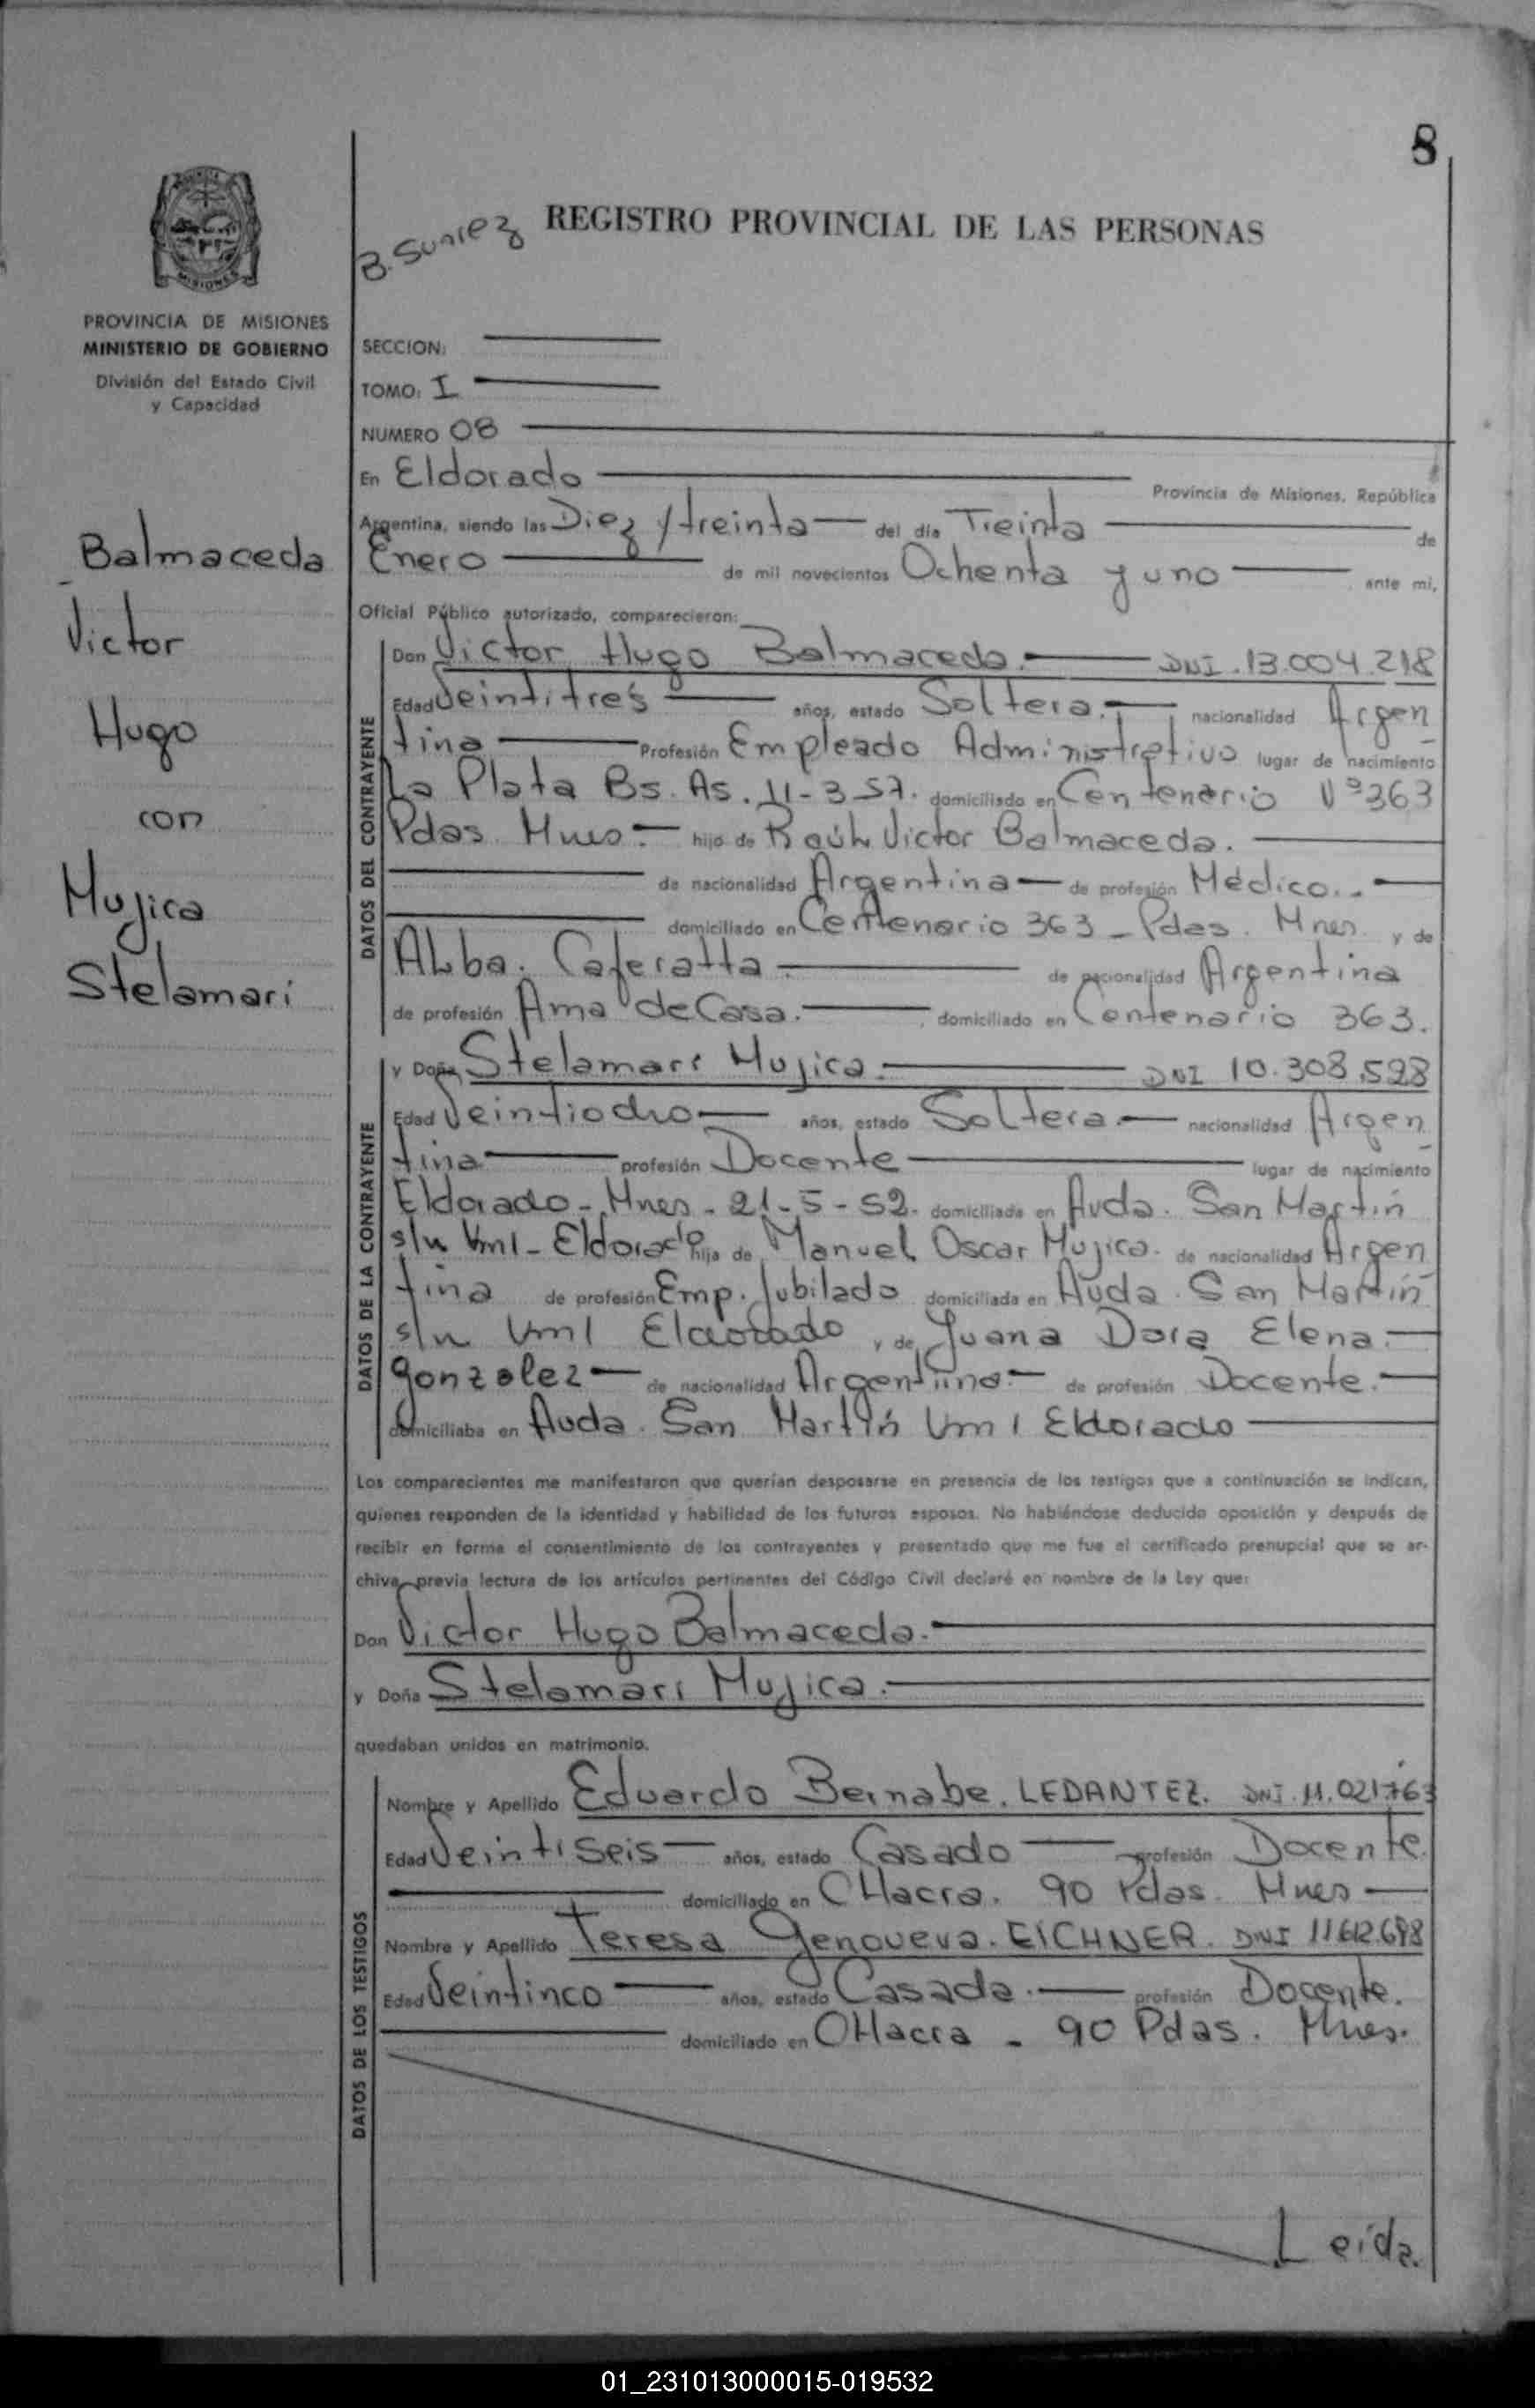 8
REGISTRO PROVINCIAL DE LAS PERSONAS
B. Suniez
PROVINCIA DE MISIONES
MINISTERIO DE GOBIERNO
División del Estado Civil
y Capacidad
Balmaceda
Victor
Hugo
con
Mujica
Stelamari
SECCION:
TOMO: I
NUMERO 08
En Eldorado Provincia de Misiones, República
Argentina, siendo las Diez y treinta del día Treinta de
Enero de mil novecientos Ochenta y uno ante mi,
Oficial Público autorizado, comparecieron:
DATOS DEL CONTRAYENTE
Don Victor Hugo Balmaceda. DNI. 13.004.218
Edad Veintitres años, estado Soltera. nacionalidad Argen
tina Profesión Empleado Administrativo lugar de nacimiento
La Plata Bs. As. 11-3-57. domiciliado en Centenario Nº 363
Pdas. Mnes. hijo de Raúl Victor Balmaceda.
de nacionalidad Argentina de profesión Médico.
domiciliado en Centenario 363 - Pdas. Mnes. y de
Alba. Caferatta de nacionalidad Argentina
de profesión Ama de Casa. domiciliado en Centenario 363.
DATOS DE LA CONTRAYENTE
y Doña Stelamari Mujica. DNI 10.308.528
Edad Veintiocho años, estado Soltera. nacionalidad Argen
tina profesión Docente lugar de nacimiento
Eldorado - Mnes - 21-5-52. domiciliada en Avda. San Martín
s/n Km1 - Eldorado hija de Manuel Oscar Mujica. de nacionalidad Argen
tina de profesión Emp. Jubilado domiciliada en Avda. San Martín
s/n Km1 Eldorado y de Juana Dora Elena.
Gonzalez de nacionalidad Argentina. de profesión Docente.
domiciliaba en Avda. San Martín Km 1 Eldorado
Los comparecientes me manifestaron que querían desposarse en presencia de los testigos que a continuación se indican,
quienes responden de la identidad y habilidad de los futuros esposos. No habiéndose deducido oposición y después de
recibir en forma el consentimiento de los contrayentes y presentado que me fue el certificado prenupcial que se ar-
chiva previa lectura de los artículos pertinentes del Código Civil declaré en nombre de la Ley que:
Don Victor Hugo Balmaceda.
y Doña Stelamari Mujica.
quedaban unidos en matrimonio.
DATOS DE LOS TESTIGOS
Nombre y Apellido Eduardo Bernabe. LEDANTEZ. DNI. 11.021.763
Edad Veintiseis años, estado Casado profesión Docente.
domiciliado en CHacra. 90 Pdas. Mnes
Nombre y Apellido Teresa Genoveva. EICHNER. DNI 11.612.698
Edad Veintinco años, estado Casada. profesión Docente.
domiciliado en CHacra - 90 Pdas. Mnes.
Leida.
01_231013000015-019532